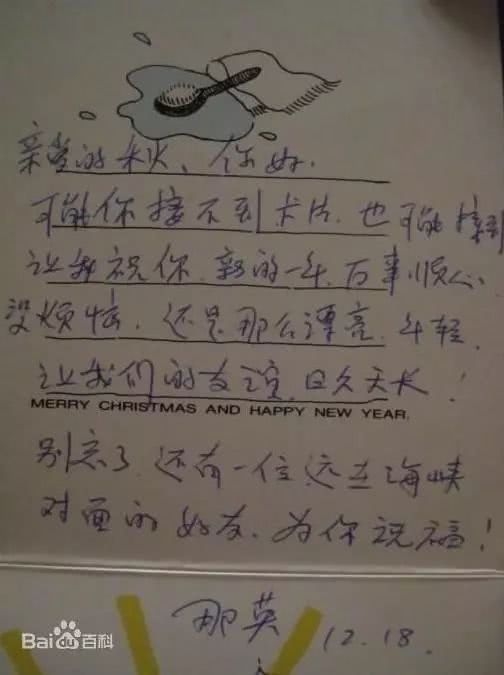 亲爱的秋、你好.
可能你接不到卡片.也可能接到
让我祝你.新的一年.万事顺心.
没烦恼.还是那么漂亮.年轻.
让我们的友谊.日久天长!
MERRY CHRISTMAS AND HAPPY NEW YEAR.
别忘了.还有一位远在海峡
对面的好友.为你祝福!
那英 12.18.
Bai百科